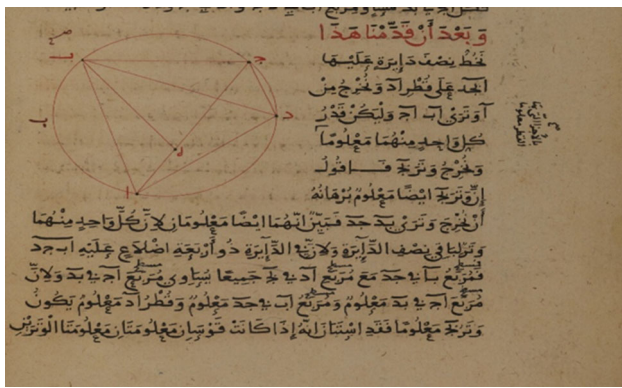 وبعد أن قدمنا هذا
نخط نصف دايرة عليها
ابجد على قطر اد ونخرج من
ا وترى اب اج وليكن قدر
كل واحد منهما معلوما
ونخرج وتر بج فاقول
إن وتر بج ايضا معلوم برهانه
أن نخرج وترى بد جد فبين انهما ايضا معلومان لان كل واحد منهما
وتر لباقى نصف الدايرة ولان في الدايرة ذو أربعة اضلاع عليه ابجد
فمربع اب في جد مع مربع اد في بج جميعا يساوى مربع اج في بد ولان
مربع اج في بد معلوم ومربع اب في جد معلوم وقطر اد معلوم يكون
وتر بج معلوما فقد استبان انه إذا كانت قوسان معلومتان معلومتا الوترين